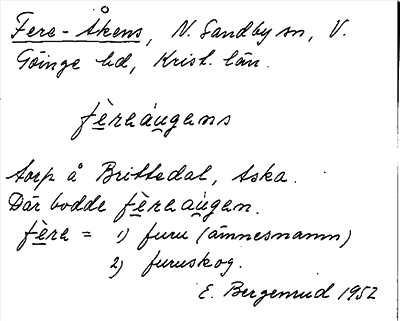 Fere-Åkens, N. Sandby sn, V.
Göinge hd, Krist. län.
fèreáugens
torp å Brittedal, Aska.
Där bodde fèreaúgen.
fère = 1) furu (ämnesnamn)
2) furuskog.
E. Bergenrud 1952